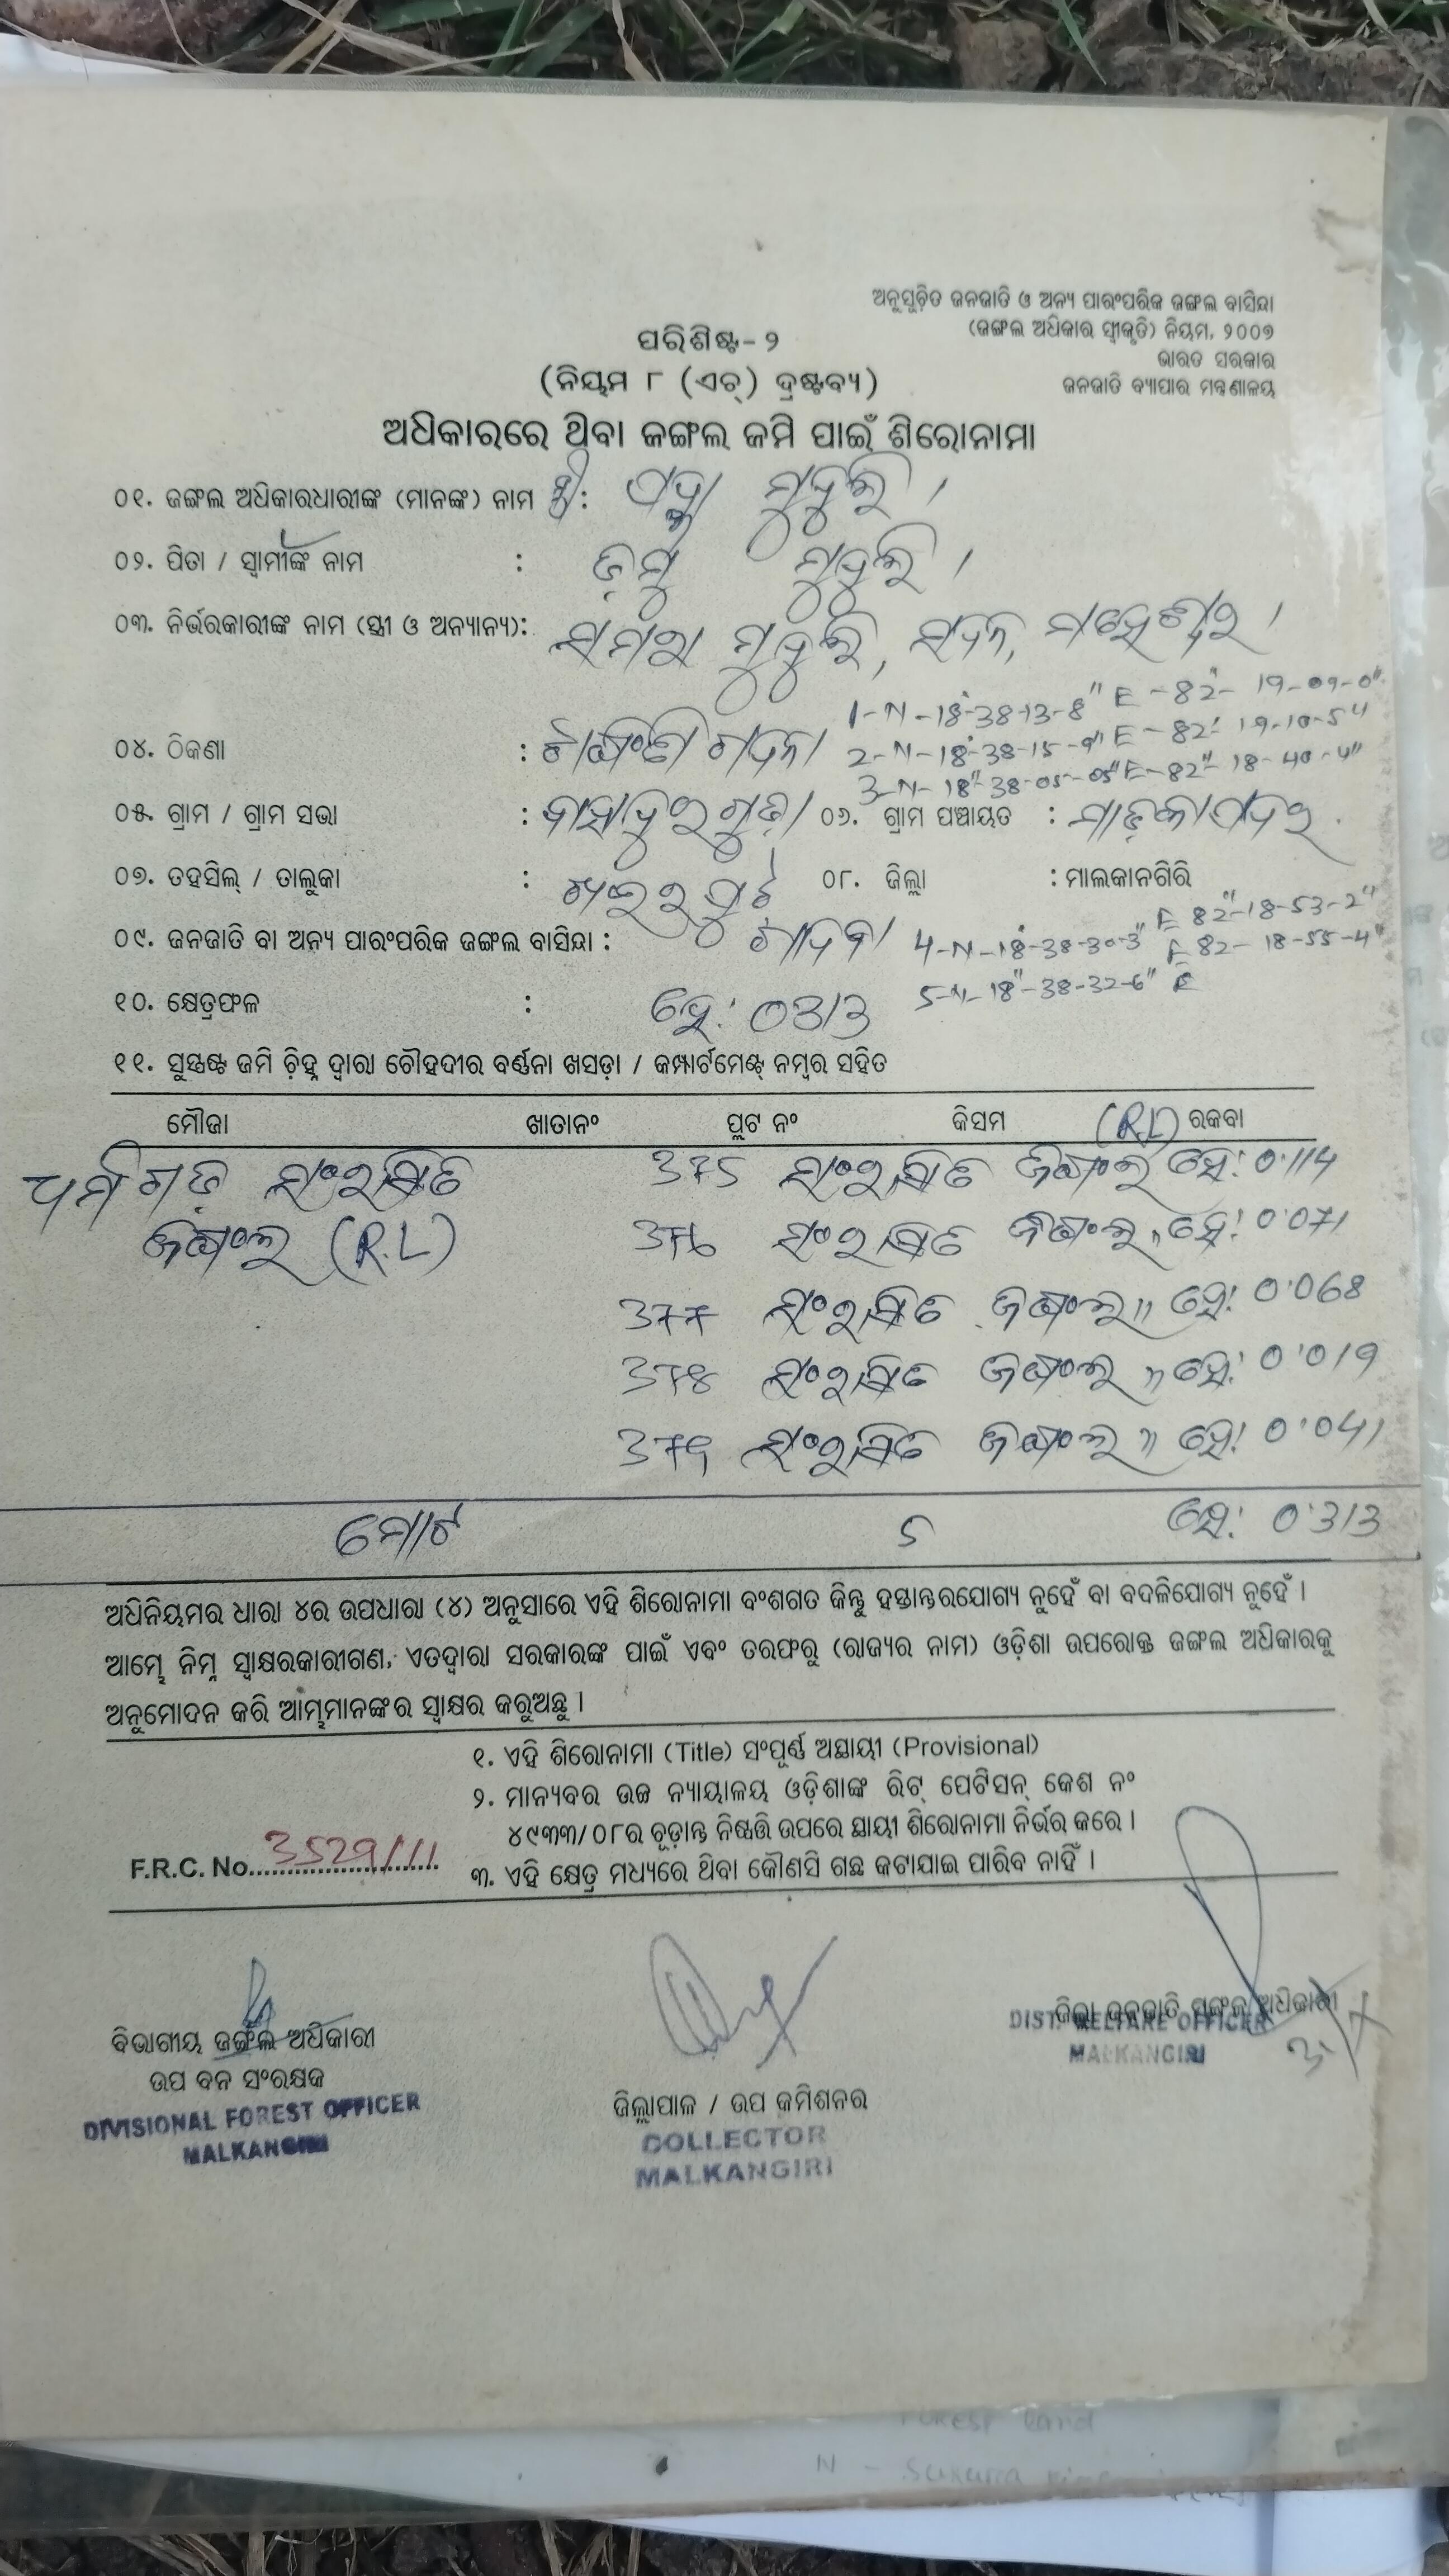 ଅନୁସୂଚିତ ଜନଜାତି ଓ ଅନ୍ୟ ପାରଂପରିକ ଜଙ୍ଗଲ ବାସିନ୍ଦା
(ଜଙ୍ଗଲ ଅଧିକାର ସ୍ୱୀକୃତି) ନିୟମ, ୨୦୦୭
ଭାରତ ସରକାର
ଜନଜାତି ବ୍ୟାପାର ମନ୍ତ୍ରଣାଳୟ
ପରିଶିଷ୍ଟ-୨
(ନିୟମ ୮ (ଏଚ୍) ଦ୍ରଷ୍ଟବ୍ୟ)
ଅଧିକାରରେ ଥିବା ଜଙ୍ଗଲ ଜମି ପାଇଁ ଶିରୋନାମା
୦୧. ଜଙ୍ଗଲ ଅଧିକାରଧାରୀଙ୍କ (ମାନଙ୍କ) ନାମ : ମୁଦୁଲି ।
୦୨. ପିତା / ସ୍ୱାମୀଙ୍କ ନାମ : ମୁଦୁଲି ।
୦୩. ନିର୍ଭରକାରୀଙ୍କ ନାମ (ସ୍ତ୍ରୀ ଓ ଅନ୍ୟାନ୍ୟ): ମୁଦୁଲି,
1-N-18-38-13-8" E-82- 19-09-0"
୦୪. ଠିକଣା : 2-N-18-38-15-9" E-82- 19-10-5"
3-N-18-38-05-05" E-82- 18-40-4"
୦୫. ଗ୍ରାମ / ଗ୍ରାମ ସଭା : ୦୬. ଗ୍ରାମ ପଞ୍ଚାୟତ :
୦୭. ତହସିଲ୍ / ତାଲୁକା : ଖଇରପୁଟ ୦୮. ଜିଲ୍ଲା : ମାଲକାନଗିରି
୦୯. ଜନଜାତି ବା ଅନ୍ୟ ପାରଂପରିକ ଜଙ୍ଗଲ ବାସିନ୍ଦା : 4-N-18-38-30-3" E 82-18-53-2"
5-N-18-38-32-6" E 82-18-55-4"
୧୦. କ୍ଷେତ୍ରଫଳ : ହେ: 0313
୧୧. ସୁସ୍ପଷ୍ଟ ଜମି ଚିହ୍ନ ଦ୍ୱାରା ଚୌହଦୀର ବର୍ଣ୍ଣନା ଖସଡ଼ା / କମ୍ପାର୍ଟମେଣ୍ଟ୍ ନମ୍ବର ସହିତ
ମୌଜା ଖାତାନଂ ପ୍ଲଟ ନଂ କିସମ (R.L) ରକବା
ଧର୍ମଗଡ ସଂରକ୍ଷିତ 375 ସଂରକ୍ଷିତ ଜଙ୍ଗଲ ହେ: 0.114
ଜଙ୍ଗଲ (R.L) 376 ସଂରକ୍ଷିତ ଜଙ୍ଗଲ " ହେ: 0.071
377 ସଂରକ୍ଷିତ ଜଙ୍ଗଲ " ହେ: 0.068
378 ସଂରକ୍ଷିତ ଜଙ୍ଗଲ " ହେ: 0.019
379 ସଂରକ୍ଷିତ ଜଙ୍ଗଲ " ହେ: 0.041
ମୋଟ 5 ହେ: 0.313
ଅଧିନିୟମର ଧାରା ୪ର ଉପଧାରା (୪) ଅନୁସାରେ ଏହି ଶିରୋନାମା ବଂଶଗତ କିନ୍ତୁ ହସ୍ତାନ୍ତରଯୋଗ୍ୟ ନୁହେଁ ବା ବଦଳିଯୋଗ୍ୟ ନୁହେଁ ।
ଆମ୍ଭେ ନିମ୍ନ ସ୍ୱାକ୍ଷରକାରୀଗଣ, ଏତଦ୍ୱାରା ସରକାରଙ୍କ ପାଇଁ ଏବଂ ତରଫରୁ (ରାଜ୍ୟର ନାମ) ଓଡ଼ିଶା ଉପରୋକ୍ତ ଜଙ୍ଗଲ ଅଧିକାରକୁ
ଅନୁମୋଦନ କରି ଆମ୍ଭମାନଙ୍କର ସ୍ୱାକ୍ଷର କରୁଅଛୁ ।
୧. ଏହି ଶିରୋନାମା (Title) ସଂପୂର୍ଣ୍ଣ ଅସ୍ଥାୟୀ (Provisional)
୨. ମାନ୍ୟବର ଉଚ୍ଚ ନ୍ୟାୟାଳୟ ଓଡ଼ିଶାଙ୍କ ରିଟ୍ ପେଟିସନ୍ କେଶ ନଂ
୪୯୩୩/୦୮ର ଚୂଡ଼ାନ୍ତ ନିଷ୍ପତ୍ତି ଉପରେ ସ୍ଥାୟୀ ଶିରୋନାମା ନିର୍ଭର କରେ ।
F.R.C. No. 3529/11
୩. ଏହି କ୍ଷେତ୍ର ମଧ୍ୟରେ ଥିବା କୌଣସି ଗଛ କଟାଯାଇ ପାରିବ ନାହିଁ ।
ବିଭାଗୀୟ ଜଙ୍ଗଲ ଅଧିକାରୀ
ଉପ ବନ ସଂରକ୍ଷକ
DIVISIONAL FOREST OFFICER
MALKANGIRI
ଜିଲ୍ଲାପାଳ / ଉପ କମିଶନର
COLLECTOR
MALKANGIRI
ଜିଲ୍ଲା ଜନଜାତି ମଙ୍ଗଳ ଅଧିକାରୀ
DIST. WELFARE OFFICER
MALKANGIRI
Forest land